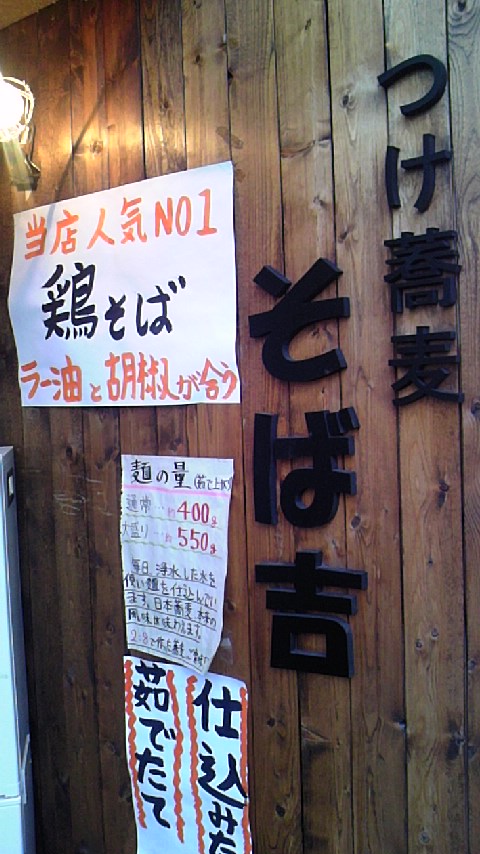 つけ蕎麦
そば吉
当店人気NO1
鶏そば
ラー油と胡椒が合う
麺の量(茹で上げ)
通常…約400g
大盛り…約550g
毎日、浄水した水を
使い麺を仕込んでい
ます。日本蕎麦本来の
風味
2:8で作った蕎麦
仕込みた
茹でたて